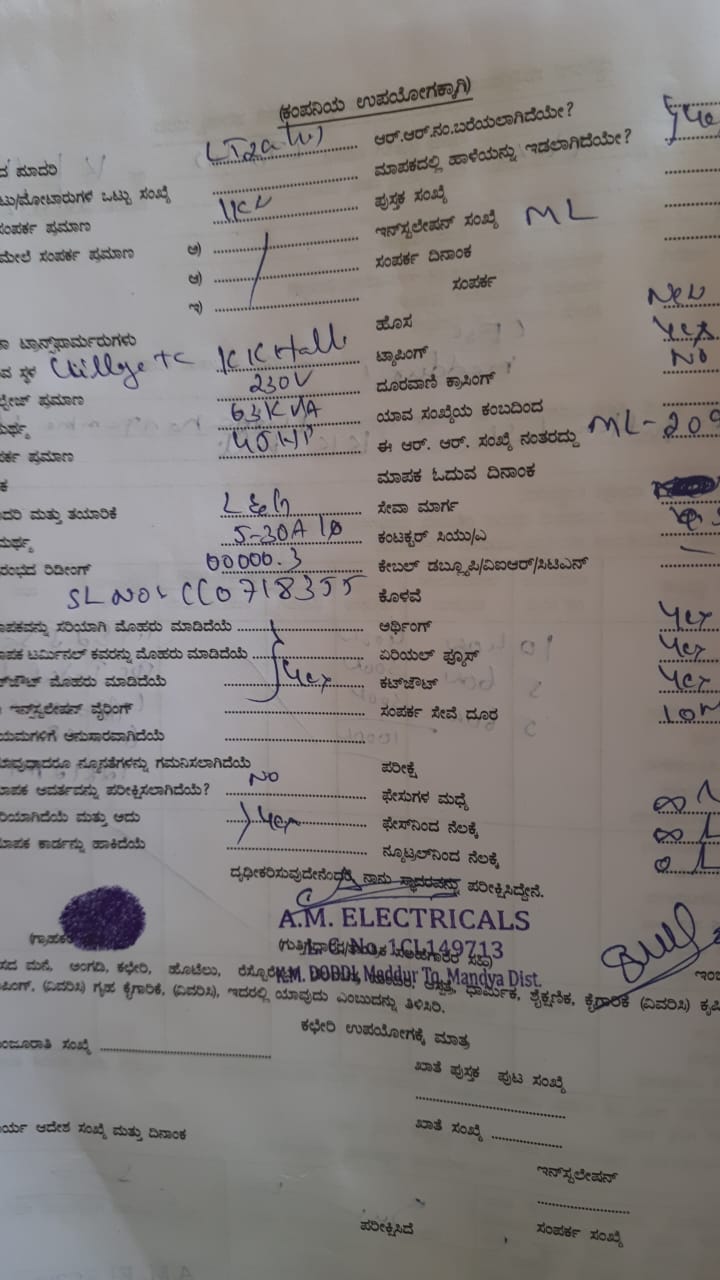 (ಕಂಪನಿಯ ಉಪಯೋಗಕ್ಕಾಗಿ)
ದ ಮಾದರಿ LT2a(ii) ಆರ್.ಆರ್.ನಂ.ಬರೆಯಲಾಗಿದೆಯೇ?
ಟು/ಮೋಟಾರುಗಳ ಒಟ್ಟು ಸಂಖ್ಯೆ ಮಾಪಕದಲ್ಲಿ ಹಾಳೆಯನ್ನು ಇಡಲಾಗಿದೆಯೇ?
ಸಂಪರ್ಕ ಪ್ರಮಾಣ 1KW ಪುಸ್ತಕ ಸಂಖ್ಯೆ
ಮೇಲೆ ಸಂಪರ್ಕ ಪ್ರಮಾಣ ಅ) ಇನ್‌ಸ್ಟಲೇಷನ್ ಸಂಖ್ಯೆ ML
ಆ) ಸಂಪರ್ಕ ದಿನಾಂಕ
ಇ) ಸಂಪರ್ಕ
ಟ್ರಾನ್ಸ್‌ಫಾರ್ಮರುಗಳು ಹೊಸ New
ವ ಸ್ಥಳ Village TC KK Halli ಟ್ಯಾಪಿಂಗ್ Yes
ಪ್ರಮಾಣ 230V ದೂರವಾಣಿ ಕ್ರಾಸಿಂಗ್ NO
63KVA ಯಾವ ಸಂಖ್ಯೆಯ ಕಂಬದಿಂದ
ಪರ್ಕ ಪ್ರಮಾಣ 45HP ಈ ಆರ್. ಆರ್. ಸಂಖ್ಯೆ ನಂತರದ್ದು ML-209
ಮಾಪಕ ಓದುವ ದಿನಾಂಕ
ಮತ್ತು ತಯಾರಿಕೆ L&G ಸೇವಾ ಮಾರ್ಗ
5-30A 1Ø ಕಂಟಕ್ಟರ್ ಸಿಯು/ಎ
ರಂಭದ ರಿಡೀಂಗ್ 00000.3 ಕೇಬಲ್ ಡಬ್ಲ್ಯೂಪಿ/ವಿಐಆರ್/ಸಿಟಿಎಸ್
SL NO: CC0718355 ಕೊಳವೆ
ಸರಿಯಾಗಿ ಮೊಹರು ಮಾಡಿದೆಯೆ ಅರ್ಥಿಂಗ್ Yes
ಟರ್ಮಿನಲ್ ಕವರನ್ನು ಮೊಹರು ಮಾಡಿದೆಯೆ ಏರಿಯಲ್ ಫ್ಯೂಸ್ Yes
ಮೊಹರು ಮಾಡಿದೆಯೆ Yes ಕಟ್‌ಔಟ್ Yes
ಇನ್‌ಸ್ಟಲೇಷನ್ ವೈರಿಂಗ್ ಸಂಪರ್ಕ ಸೇವೆ ದೂರ 10M
ಯಮಗಳಿಗೆ ಅನುಸಾರವಾಗಿದೆಯೆ
ನ್ಯೂನತೆಗಳನ್ನು ಗಮನಿಸಲಾಗಿದೆಯೆ ಪರೀಕ್ಷೆ
ಆವರ್ತವನ್ನು ಪರೀಕ್ಷಿಸಲಾಗಿದೆಯೆ? NO ಫೇಸುಗಳ ಮಧ್ಯೆ
ರಿಯಾಗಿದೆಯೆ ಮತ್ತು ಅದು Yes ಫೇಸ್‌ನಿಂದ ನೆಲಕ್ಕೆ
ಕಾರ್ಡನ್ನು ಹಾಕಿದೆಯೆ ನ್ಯೂಟ್ರಲ್‌ನಿಂದ ನೆಲಕ್ಕೆ
ದೃಢೀಕರಿಸುವುದೇನೆಂದರೆ, ನಾನು ಸ್ಥಾವರವನ್ನು ಪರೀಕ್ಷಿಸಿದ್ದೇನೆ.
A.M. ELECTRICALS
L.C. No. 1CL149713
K.M. DODDI, Maddur Tq, Mandya Dist.
ಮನೆ, ಅಂಗಡಿ, ಕಛೇರಿ, ಹೊಟೆಲು, ಧಾರ್ಮಿಕ, ಶೈಕ್ಷಣಿಕ, ಕೈಗಾರಿಕೆ (ವಿವರಿಸಿ)
(ವಿವರಿಸಿ) ಗೃಹ ಕೈಗಾರಿಕೆ, (ವಿವರಿಸಿ), ಇದರಲ್ಲಿ ಯಾವುದು ಎಂಬುದನ್ನು ತಿಳಿಸಿರಿ.
ಕಛೇರಿ ಉಪಯೋಗಕ್ಕೆ ಮಾತ್ರ
ಂಜೂರಾತಿ ಸಂಖ್ಯೆ ಖಾತೆ ಪುಸ್ತಕ ಪುಟ ಸಂಖ್ಯೆ
ರ್ಯ ಆದೇಶ ಸಂಖ್ಯೆ ಮತ್ತು ದಿನಾಂಕ ಖಾತೆ ಸಂಖ್ಯೆ
ಇನ್‌ಸ್ಟಲೇಷನ್
ಪರೀಕ್ಷಿಸಿದೆ ಸಂಪರ್ಕ ಸಂಖ್ಯೆ